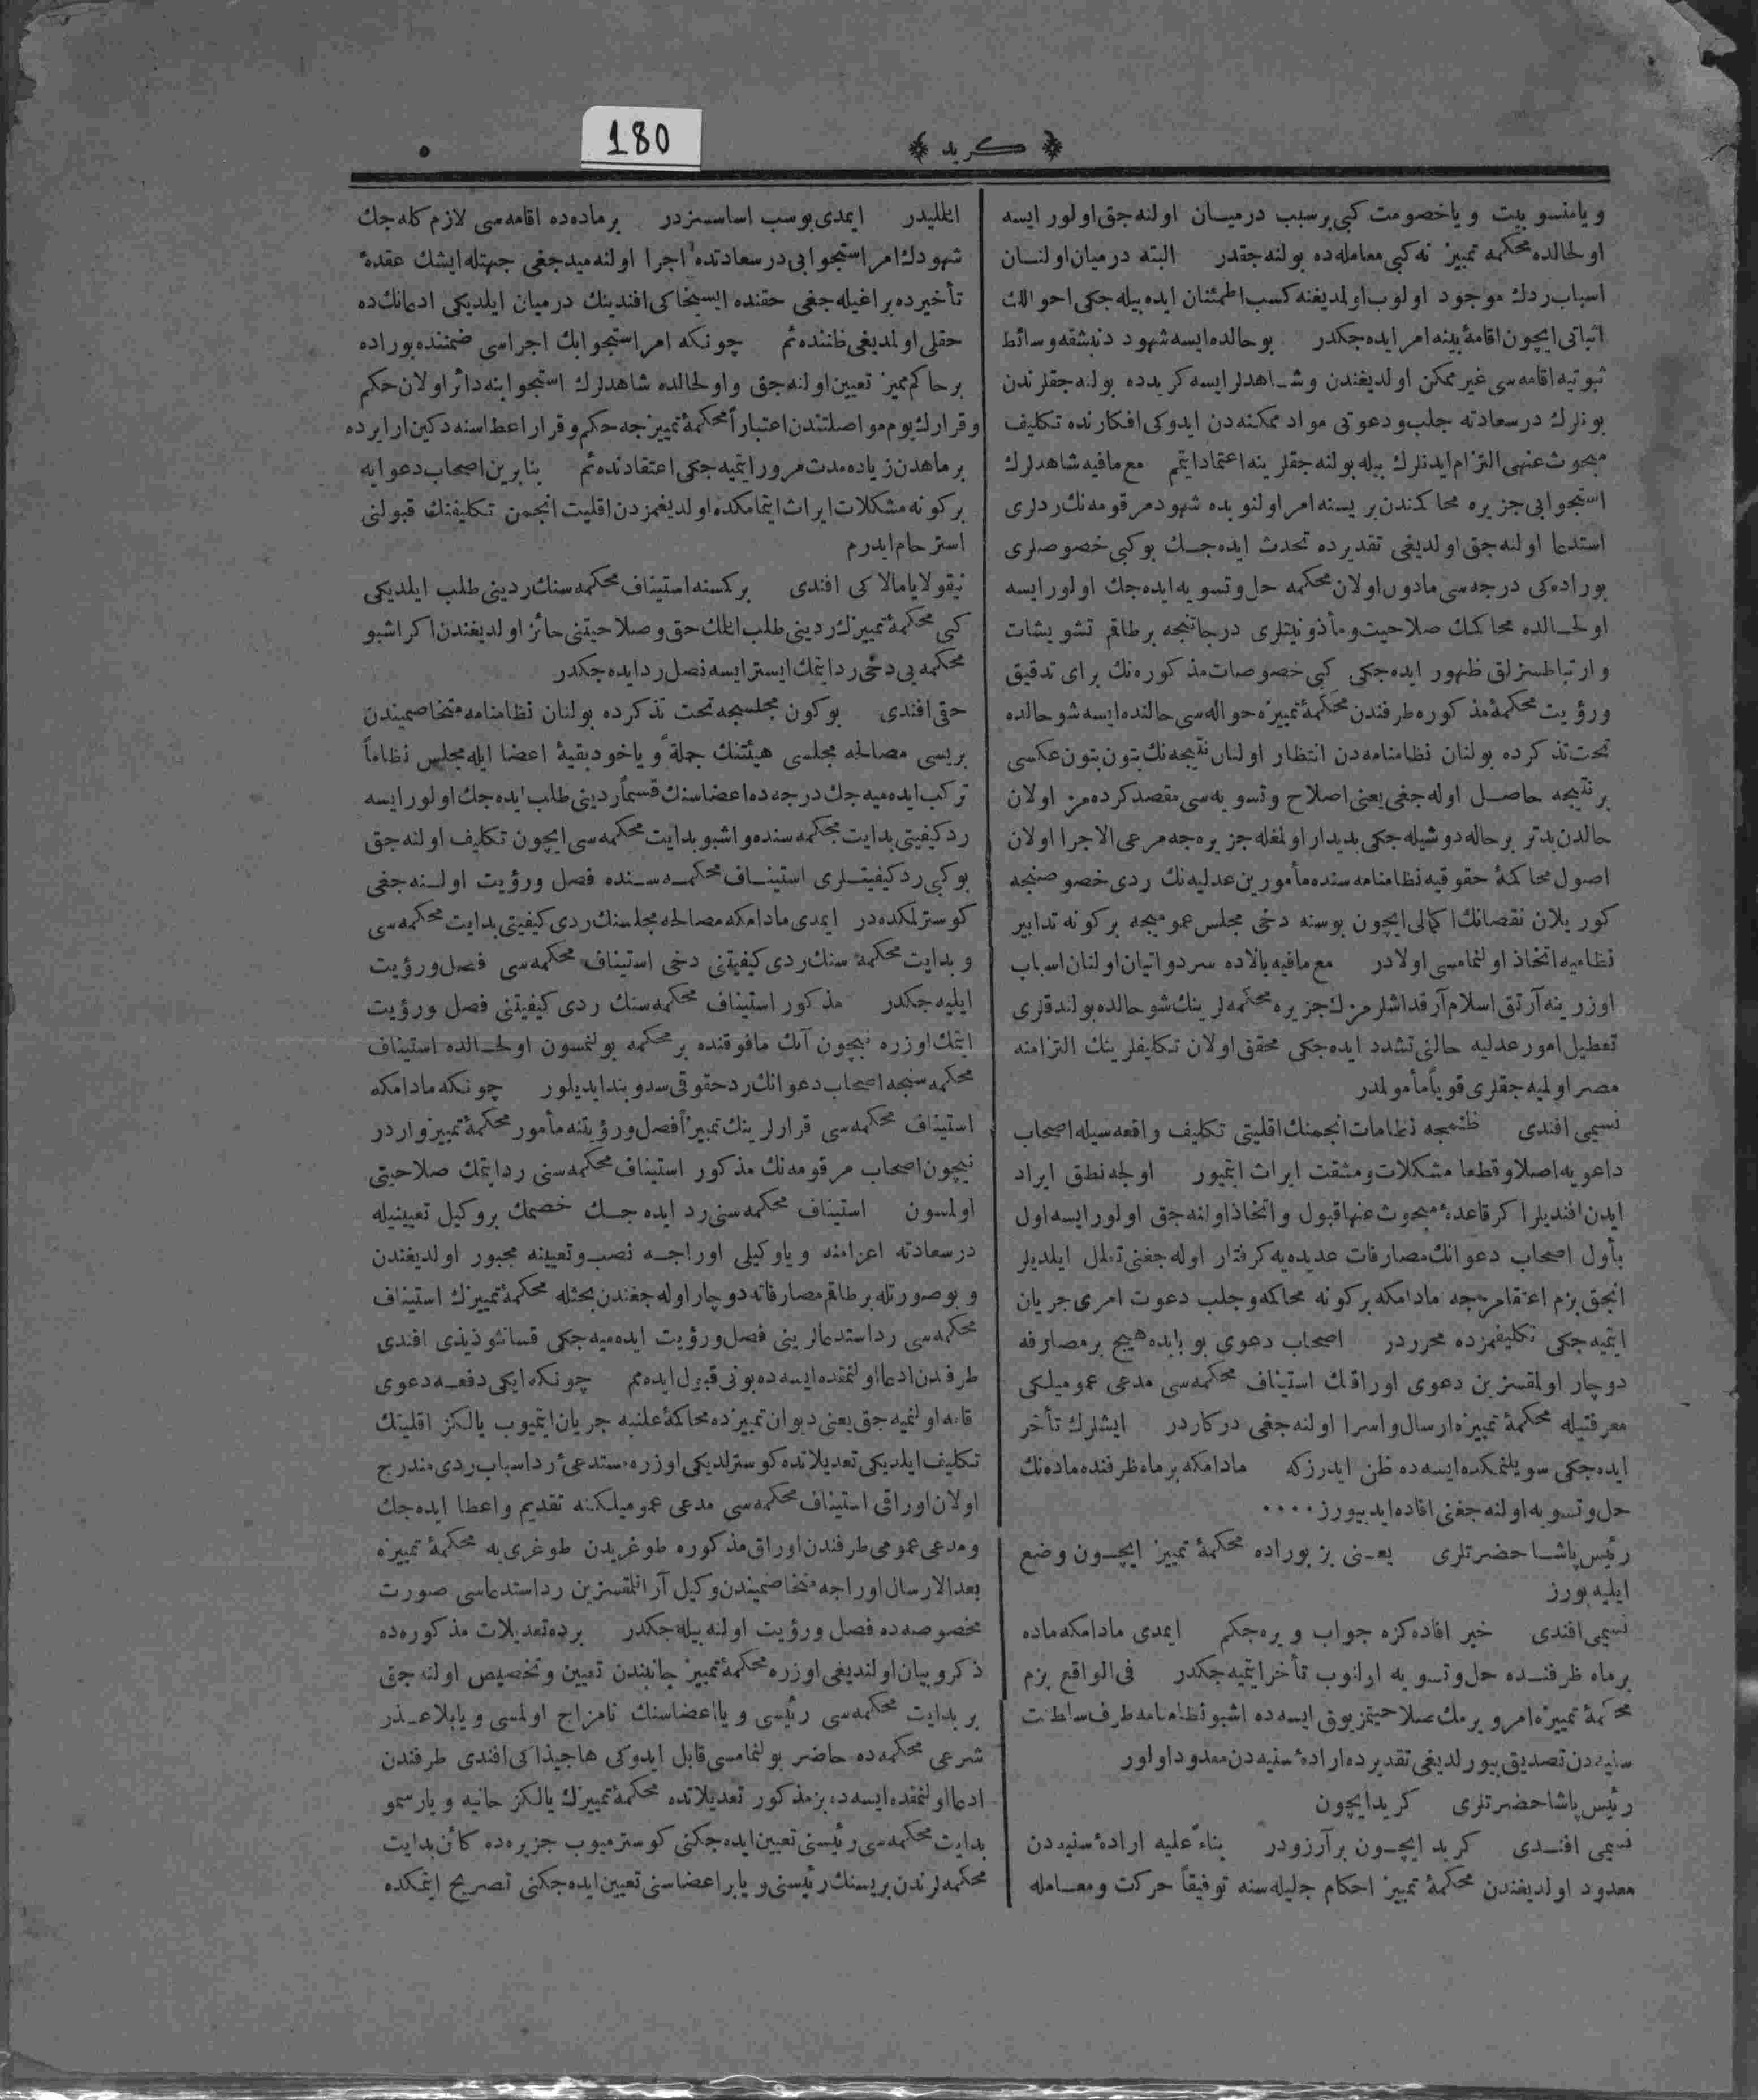 180
﴿ كريد ﴾
ويا منسوبيت ويا خصومت كبى برسبب درميان اولنه جق اولور ايسه
اولحالده محكمه تمييز نه كبى معامله ده بولنه جقدر البته درميان اولنان
اسباب ردك موجود اولوب اولمديغنه كسب اطمئنان ايده بيله جكى احوالك
اثباتى ايچون اقامهٔ بينه امر ايده جكدر بو حالده ايسه شهود دنبشقه وسائط
ثبوتيه اقامه سى غير ممكن اولديغندن وشاهدلر ايسه كريدده بولنه جقلرندن
بونلرك درسعادته جلب ودعوتى مواد ممكنه دن ايدوكى افكارنده تكليف
مبحوث عنهى التزام ايدنلرك بيله بولنه جقلرينه اعتماد ايتم مع مافيه شاهدلرك
استجوابى جزيره محاكمندن بريسنه امر اولنوبده شهود مرقومه نك ردلرى
استدعا اولنه جق اولديغى تقديرده تحدث ايده جك بوكبى خصوصلرى
بوراده كى درجه سى مادون اولان محكمه حل وتسويه ايده جك اولور ايسه
اولحالده محاكمك صلاحيت ومأذونيتلرى درجاتنجه برطاقم تشويشات
وارتباطسزلق ظهور ايده جكى كبى خصوصات مذكوره نك براى تدقيق
ورؤيت محكمهٔ مذكوره طرفندن محكمهٔ تمييزه حواله سى حالنده ايسه شو حالده
تحت تذكرده بولنان نظامنامه دن انتظار اولنان نتيجه نك بتون بتون عكسى
برنتيجه حاصل اوله جغى يعنى اصلاح وتسويه سى مقصد كرده مز اولان
حالدن بدتر برحاله دوشيله جكى بديدار اولمغله جزيره جه مرعى الاجرا اولان
اصول محاكمهٔ حقوقيه نظامنامه سنده مأمورين عدليه نك ردى خصوصنجه
كوريلان نقصانك اكمالى ايچون بوسنه دخى مجلس عموميجه بركونه تدابير
نظاميه اتخاذ اولنمامسى اولادر مع مافيه بالاده سرد واتيان اولنان اسباب
اوزرينه آرتق اسلام آرقداشلرمزك جزيره محكمه لرينك شو حالده بولندقلرى
تعطيل امور عدليه حالنى تشدد ايده جكى محقق اولان تكليفلرينك التزامنه
مصر اولميه جقلرى قوياً مأمولمدر
نسيمى افندى ظنمجه نظامات انجمنك اقليتى تكليف واقعه سيله اصحاب
داعويه اصلا وقطعا مشكلات ومشقت ايراث ايتميور اولجه نطق ايراد
ايدن افنديلر اكر قاعدهٔ مبحوث عنها قبول واتخاذ اولنه جق اولور ايسه اول
بأول اصحاب دعوانك مصارفات عديده يه كرفتار اوله جغنى تعلل ايلديلر
انجق بزم اعتقادمزجه مادامكه بركونه محاكمه وجلب دعوت امرى جريان
ايتميه جكى تكليفمزده محرردر اصحاب دعوى بوبابده هيچ برمصارفه
دوچار اولمقسزين دعوى اوراقك استيناف محكمه سى مدعى عموميلكى
معرفتيله محكمهٔ تمييزه ارسال واسرا اولنه جغى دركاردر ايشلرك تأخر
ايده جكى سويلنمكده ايسه ده ظن ايدرزكه مادامكه برماه ظرفنده ماده نك
حل وتسويه اولنه جغنى افاده ايديورز ٠٠٠٠
رئيس پاشا حضرتلرى يعنى بز بوراده محكمهٔ تمييز ايچون وضع
ايليه يورز
نسيمى افندى خير افاده كزه جواب ويره جكم ايمدى مادامكه ماده
برماه ظرفنده حل وتسويه اولنوب تأخر ايتميه جكدر فى الواقع بزم
محكمهٔ تمييزه امر ويرمك صلاحيتمز يوق ايسه ده اشبو نظامنامه طرف سلطنت
سنيه دن تصديق بيورلديغى تقديرده ارادهٔ سنيه دن معدود اولور
رئيس پاشا حضرتلرى كريد ايچون
نسيمى افندى كريد ايچون برآرزودر بناءً عليه ارادهٔ سنيه دن
معدود اولديغندن محكمهٔ تمييز احكام جليله سنه توفيقاً حركت ومعامله
ايتمليدر ايمدى بوسبب اساسسزدر برماده ده اقامه سى لازم كله جك
شهودك امر استجوابى درسعادتده اجرا اولنه ميه جغى جهتله ايشك عقدهٔ
تأخيرده براغيله جغى حقنده ايسيخاكى افندينك درميان ايلديكى ادعانك ده
حقلى اولمديغى ظننده ئم چونكه امر استجوابك اجراسى ضمننده بوراده
برحاكم مميز تعيين اولنه جق واولحالده شاهدلرك استجوابنه دائر اولان حكم
وقرارك يوم مواصلتندن اعتباراً محكمهٔ تمييزجه حكم وقرار اعطاسنه دكين ارايرده
برماهدن زياده مدت مرور ايتميه جكى اعتقادنده ئم بنابرين اصحاب دعوايه
بركونه مشكلات ايراث ايتمامكده اولديغمزدن اقليت انجمن تكليفنك قبولنى
استرحام ايدرم
نيقولايا مالاكى افندى بركمسنه استيناف محكمه سنك ردينى طلب ايلديكى
كبى محكمهٔ تمييزك ردينى طلب ايتمك حق وصلاحيتنى حائز اولديغندن اكر اشبو
محكمه يى دخى رد ايتمك ايستر ايسه نصل رد ايده جكدر
حقى افندى بوكون مجلسجه تحت تذكرده بولنان نظامنامه متخاصميندن
بريسى مصالحه مجلسى هيئتنك جملةً وياخود بقيهٔ اعضا ايله مجلس نظاماً
تركب ايده ميه جك درجه ده اعضاسنك قسماً ردينى طلب ايده جك اولور ايسه
رد كيفيتى بدايت محكمه سنده واشبو بدايت محكمه سى ايچون تكليف اولنه جق
بوكبى رد كيفيتلرى استيناف محكمه سنده فصل ورؤيت اولنه جغى
كوسترلمكده در ايمدى مادامكه مصالحه مجلسنك ردى كيفيتى بدايت محكمه سى
وبدايت محكمه سنك ردى كيفيتنى دخى استيناف محكمه سى فصل ورؤيت
ايليه جكدر مذكور استيناف محكمه سنك ردى كيفيتنى فصل ورؤيت
ايتمك اوزره نيچون آنك مافوقنده برمحكمه بولنمسون اولحالده استيناف
محكمه سنجه اصحاب دعوانك رد حقوقى سد وبند ايديلور چونكه مادامكه
استيناف محكمه سى قرارلرينك تمييزاً فصل ورؤيتنه مأمور محكمهٔ تمييز واردر
نيچون اصحاب مرقومه نك مذكور استيناف محكمه سنى رد ايتمك صلاحيتى
اولمسون استيناف محكمه سنى رد ايده جك خصمك بروكيل تعيينيله
درسعادته اعزامنه وياوكيلى اوراجه نصب وتعيينه مجبور اولديغندن
وبوصورتله برطاقم مصارفاته دوچار اوله جغندن بحثله محكمهٔ تمييزك استيناف
محكمه سى رد استدعالرينى فصل ورؤيت ايده ميه جكى قسانثوذيذى افندى
طرفندن ادعا اولنمقده ايسه ده بونى قبول ايده مم چونكه ايكى دفعه دعوى
قامه اولنميه جق يعنى ديوان تمييزده محاكمهٔ علنيه جريان ايتميوب يالكز اقليتك
تكليف ايلديكى تعديلاتده كوسترلديكى اوزره مستدعىٔ رد اسباب ردى مندرج
اولان اوراقى استيناف محكمه سى مدعى عموميلكنه تقديم واعطا ايده جك
ومدعى عمومى طرفندن اوراق مذكوره طوغريدن طوغرى يه محكمهٔ تمييزه
بعد الارسال اوراجه متخاصميندن وكيل آرانلقسزين رد استدعاسى صورت
مخصوصه ده فصل ورؤيت اولنه بيله جكدر برده تعديلات مذكوره ده
ذكر وبيان اولنديغى اوزره محكمهٔ تمييز جانبندن تعيين وتخصيص اولنه جق
بر بدايت محكمه سى رئيسى ويا اعضاسنك نامزاج اولمسى ويا بلا عذر
شرعى محكمه ده حاضر بولنمامسى قابل ايدوكى هاجيذاكى افندى طرفندن
ادعا اولنمقده ايسه ده بز مذكور تعديلاتده محكمهٔ تمييزك يالكز خانيه ويا رسمو
بدايت محكمه سى رئيسنى تعيين ايده جكنى كوسترميوب جزيره ده كائن بدايت
محكمه لرندن بريسنك رئيسنى ويا بر اعضاسنى تعيين ايده جكنى تصريح ايتمكده